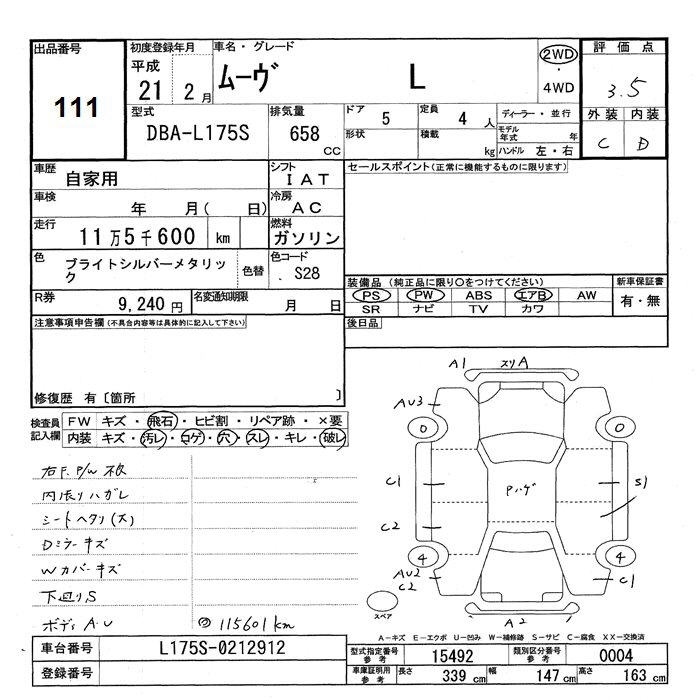 出品番号
111
初度登録年月
平成
21 2 月
車名・グレード
ムーヴ L
2WD
・
4WD
評価点
3.5
外装 内装
C D
型式
DBA-L175S
排気量
658
CC
ドア 5
定員 4 人
形状
積載 kg
ディーラー・並行
モデル年式 年
ハンドル 左・右
車歴
自家用
シフト
IAT
車検
年 月( 日)
冷房
AC
走行
11万5千600 km
燃料
ガソリン
色
ブライトシルバーメタリック
色替
色コード
S28
R券
9,240 円
名変通知期限
月 日
セールスポイント(正常に機能するものに限ります)
装備品 (純正品に限り○をつけてください)
PS PW ABS エアB AW
SR ナビ TV カワ
新車保証書
有・無
後日品
注意事項申告欄(不具合内容等は具体的に記入して下さい)
修復歴 有〔箇所 〕
検査員
記入欄
FW キズ・飛石・ヒビ割・リペア跡・×要
内装 キズ・汚レ・コゲ・穴・スレ・キレ・破レ
右F.P/W 不良
内張りハガレ
シートヘタリ(大)
Dミラーキズ
Wカバーキズ
下廻りS
ボディA.U
115601km
A1
スリA
AU3
0
0
C1
S1
Pハゲ
C2
4
4
AU2
C2
C1
スペア
A2
A-キズ E-エクボ U-凹み W-補修跡 S-サビ C-腐食 XX-交換済
車台番号
L175S-0212912
登録番号
型式指定番号
参考
15492
類別区分番号
参考
0004
車庫証明用
参考
長さ 339 cm
幅 147 cm
高さ 163 cm